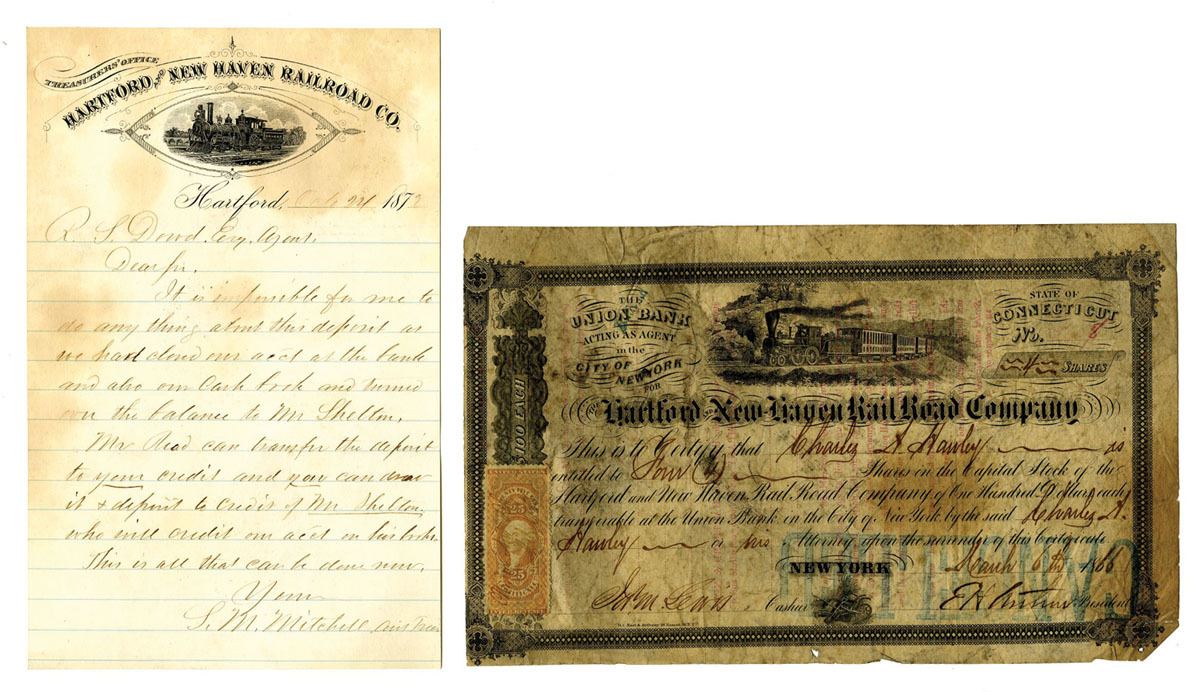 TREASURERS' OFFICE
HARTFORD, AND NEW HAVEN RAILROAD CO.
Hartford, 24 187
R. S. Dowd Esq. Agent,
Dear Sir,
It is impossible for me to
do any thing about this deposit as
we have closed our acct at the bank
and also our Cash book and turned
over the balance to Mr Shelton,
Mr Read can transfer the deposit
to your credit and you can draw
it & deposit to credit of Mr Shelton,
who will credit our acct on his books.
This is all that can be done now,
Yours
S. M. Mitchell
THE
UNION BANK
ACTING AS AGENT
in the
CITY OF NEW YORK
FOR
STATE OF
CONNECTICUT
No. 8
4 SHARES
$100 EACH
THE Hartford AND New-Haven Rail Road Company
This is to Certify that Charles A Hawley is
entitled to Four (4) Shares on the Capital Stock of the
Hartford and New Haven Rail Road Company of One Hundred Dollars each
transferable at the Union Bank in the City of New York by the said Charles A.
Hawley or his Attorney upon the surrender of this Certificate
NEW YORK March 6th 1866
Cashier President
25
25